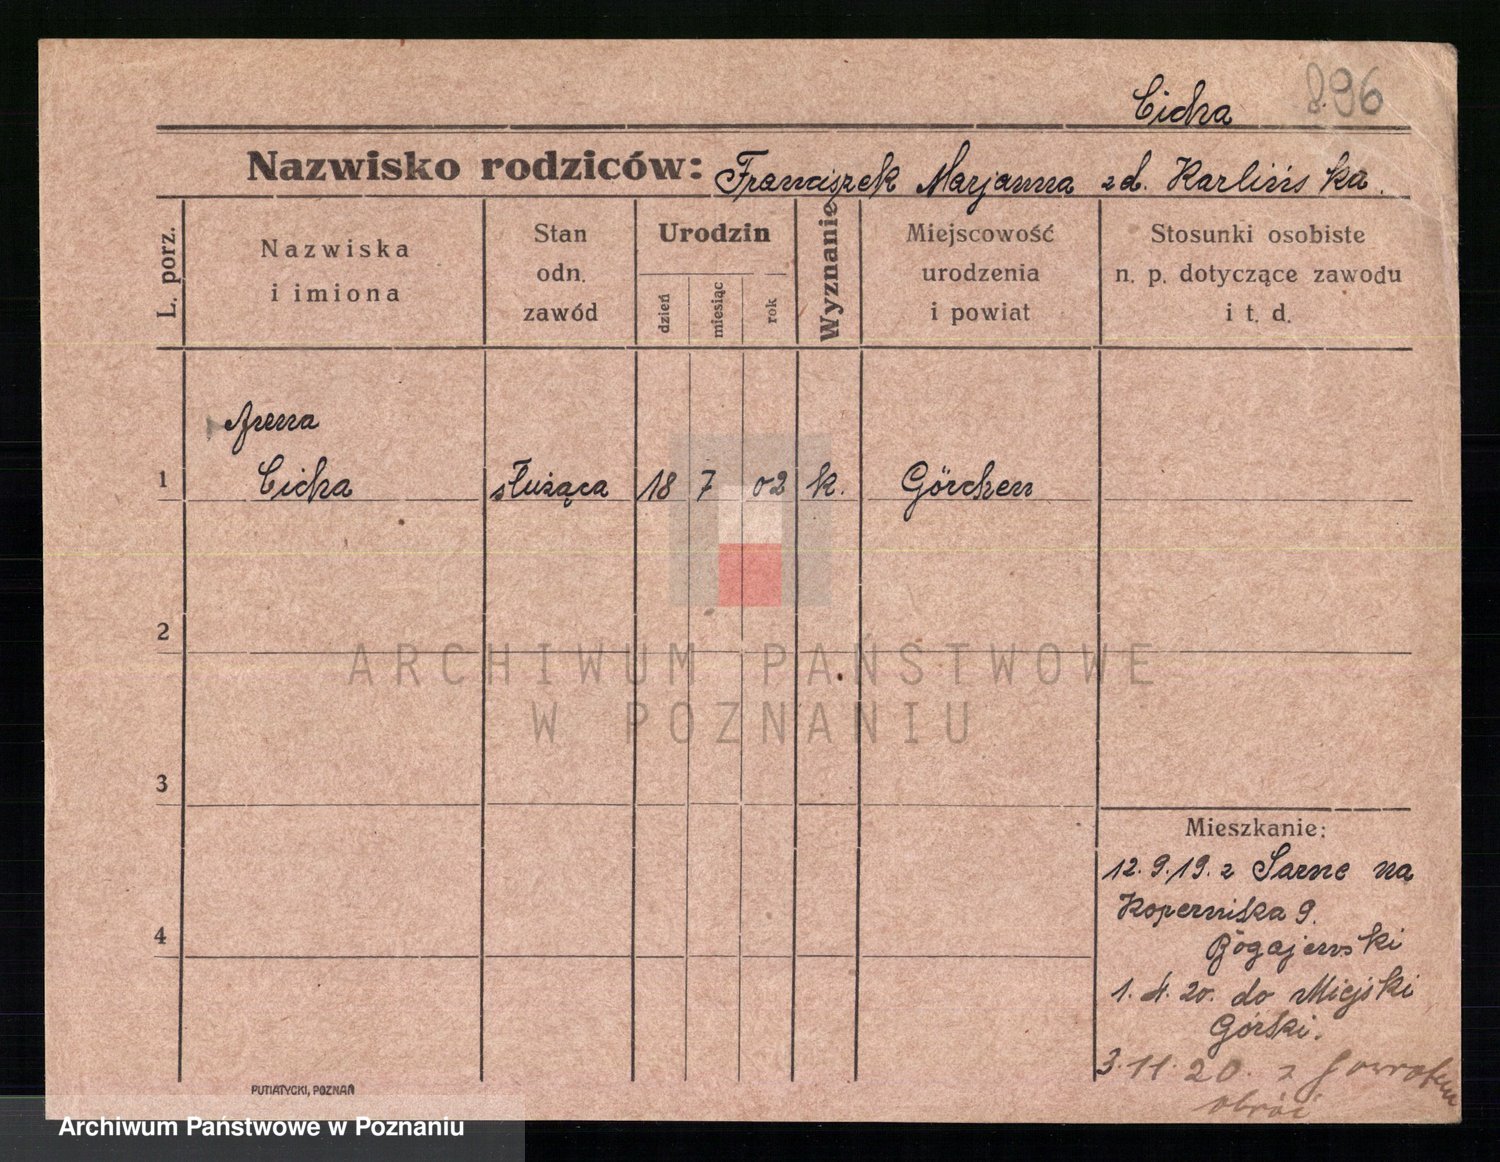 Cicha 896
Nazwisko rodziców: Franciszek Marjanna zd. Karlińska.
L. porz.
Nazwiska
i imiona
Stan
odn.
zawód
Urodzin
dzień
miesiąc
rok
Wyznanie
Miejscowość
urodzenia
i powiat
Stosunki osobiste
n. p. dotyczące zawodu
i t. d.
Irena
1 Cicha służąca 18 7 02 k. Görchen
2
3
4
Mieszkanie:
12.9.19. z Sarne na
Kopernika 9.
Bogajewski
1.4.20. do Miejski
Górki.
3.11.20. z
PUTIATYCKI, POZNAŃ
ARCHIWUM PAŃSTWOWE
W POZNANIU
Archiwum Państwowe w Poznaniu